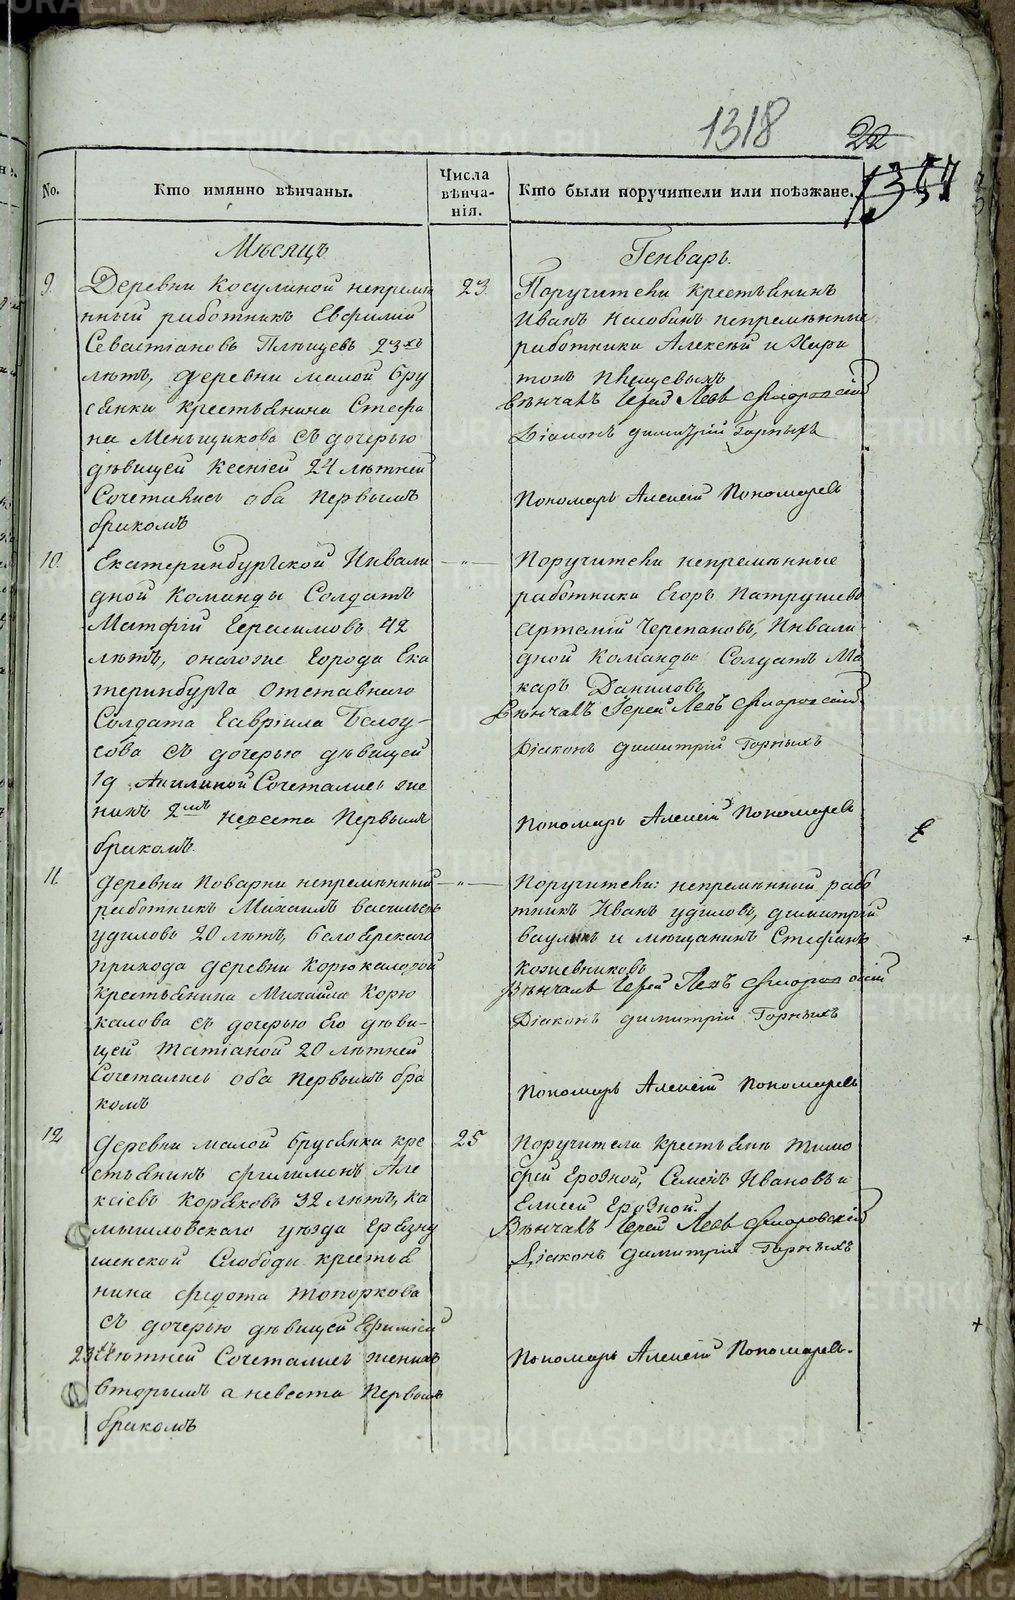 1318
22
1357
No.
Кто имянно вѣнчаны.
Числа вѣнча-нія.
Кто были поручители или поѣзжане.
Мѣсяцъ
Генварь.
9.
Деревни Косулиной непремѣн
ный работникъ Евфимій
Севастіановъ Плѣщевъ 23хъ
лѣтъ, деревни малой бру
сянки крестьянина Стефа
на Меньщикова съ дочерью
дѣвицей Ксеніей 24 лѣтней
Сочетались оба первымъ
бракомъ
23.
Поручители крестьянинъ
Иванъ непремѣнные
работники Алексѣй и Хари
тонъ Плещевыхъ
Вѣнчалъ Іерей Левъ Флоровскій
Діаконъ Димитрій Горныхъ
Пономарь Алексій Пономаревъ
10.
Екатеринбургской Инвали
дной Команды Солдатъ
Матфій Герасимовъ 42
лѣтъ, оногоже города Ека
теринбурга отставнаго
Солдата Гавріила Бѣлоу-
сова съ дочерью дѣвицей
19 Акилиной Сочетались же
нихъ 2мъ невеста первымъ
бракомъ.
— " —
Поручители непремѣнные
работники Егоръ Патрушевъ
Артемій Черепановъ, Инвали-
дной Команды Солдатъ Ма
каръ Даниловъ
Вѣнчалъ Іерей Левъ Флоровскій
Діаконъ Димитрій Горныхъ
Пономарь Алексій Пономаревъ
11.
Деревни Поварни непремѣнный
работникъ Михаилъ Васильевъ
Удиловъ 20 лѣтъ, Белоярскаго
прихода деревни Корюкаловой
Крестьянина Михаила Корю
калова съ дочерью Его дѣви-
цей Татіаной 20 лѣтней
Сочетались оба первымъ бра
комъ
— " —
Поручители: непремѣнный рабо
тникъ Иванъ Удиловъ, Димитрій
Ваулинъ и мѣщанинъ Стефанъ
Кожевниковъ
Вѣнчалъ Іерей Левъ Флоровскій
Діаконъ Димитрій Горныхъ
Пономарь Алексій Пономаревъ
12
Деревни малой брусянки кре
стьянинъ Филимонъ Але
ксіевъ Коряковъ 32 лѣтъ, ка
мышловскаго уѣзда
Слободы крестья
нина Федота Топоркова
съ дочерью дѣвицей Ефиміей
23 лѣтней Сочетались женихъ
вторымъ а невеста первымъ
бракомъ
25
Поручители крестьяне Тимо
фей Еродной, Семенъ Ивановъ и
Елисей Еродной.
Вѣнчалъ Іерей Левъ Флоровскій
Діаконъ Димитрій Горныхъ
Пономарь Алексій Пономаревъ.
METRIKI.GASO-URAL.RU